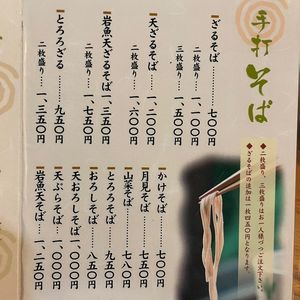 手打そば
◆二枚盛り、三枚盛りはお一人様づつご注文下さい。
◆ざるそばの追加は一枚四五〇円となります。
ざるそば……七〇〇円
二枚盛り…一、一〇〇円
三枚盛り…一、五〇〇円
天ざるそば…一、二〇〇円
二枚盛り…一、六〇〇円
岩魚天ざるそば…一、三五〇円
二枚盛り…一、七五〇円
とろろざる………九五〇円
二枚盛り…一、三五〇円
かけそば…七〇〇円
月見そば…七五〇円
山菜そば…七八〇円
とろろそば…九五〇円
おろしそば…八五〇円
天おろしそば…一、〇〇〇円
天ぷらそば…一、〇〇〇円
岩魚天そば…一、二五〇円